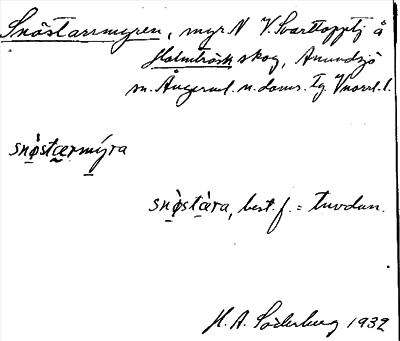 Snöstarrmyren, myr N V. Svarttopptj å
Holmträsk skog, Anundsjö
sn. Ångerml. n. doms. tg. Vnorrl. l.
snø̀stærmýra
snø̀stàra, best. f. = tuvdun.
H. A. Söderberg 1932